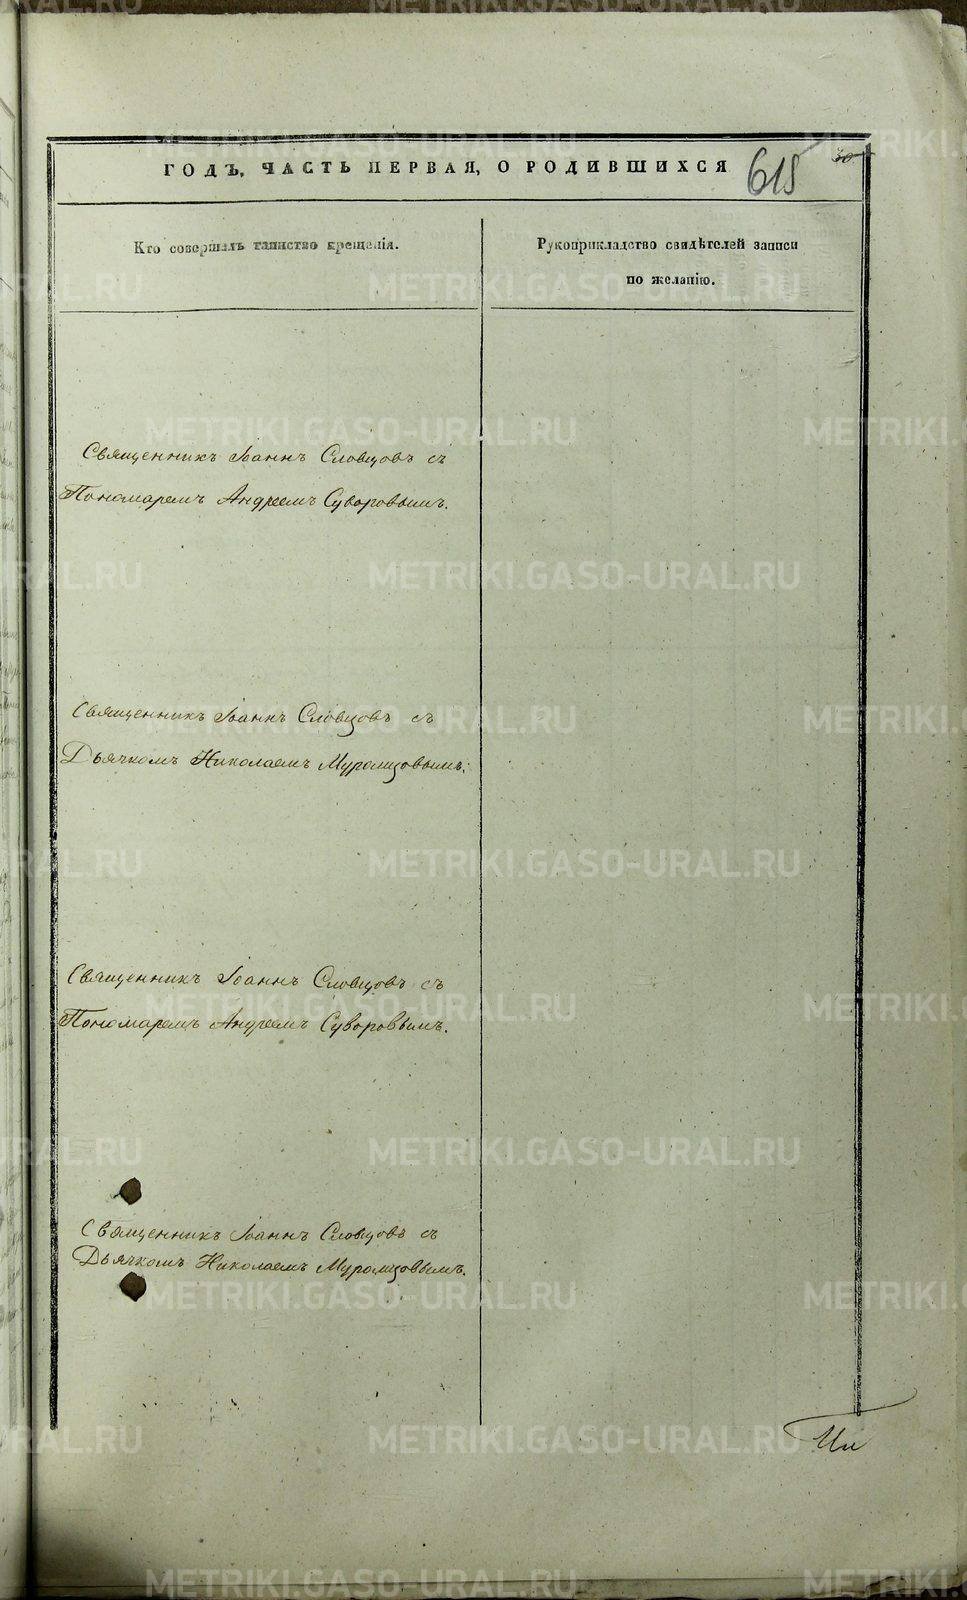 ГОДЪ, ЧАСТЬ ПЕРВАЯ, О РОДИВШИХСЯ
615
30
Кто совершалъ таинство крещенія.
Рукоприкладство свидѣтелей записи
по желанію.
Священникъ Іоаннъ Словцовъ съ
Пономаремъ Андреемъ Суворовымъ.
Священникъ Іоаннъ Словцовъ съ
Дьячкомъ Николаемъ Муромцовымъ.
Священникъ Іоаннъ Словцовъ съ
Пономаремъ Андреемъ Суворовымъ.
Священникъ Іоаннъ Словцовъ съ
Дьячкомъ Николаемъ Муромцовымъ.
METRIKI.GASO-URAL.RU